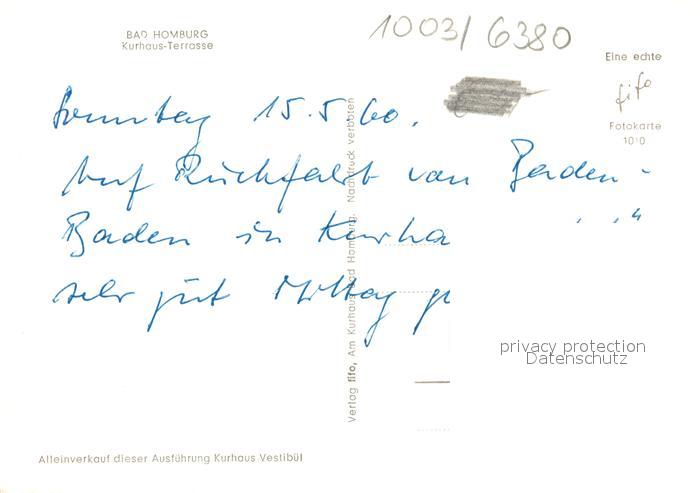 BAD HOMBURG
Kurhaus-Terrasse
1003/ 6380
Eine echte
fifo
Fotokarte
1010
Sonntag 15.5.60.
Auf Rückfahrt von Baden-
Baden in Kurha
sehr gut Mittag g
Verlag fifo, Am Kurhaus Bad Homburg. Nachdruck verboten
privacy protection
Datenschutz
Alleinverkauf dieser Ausführung Kurhaus Vestibül